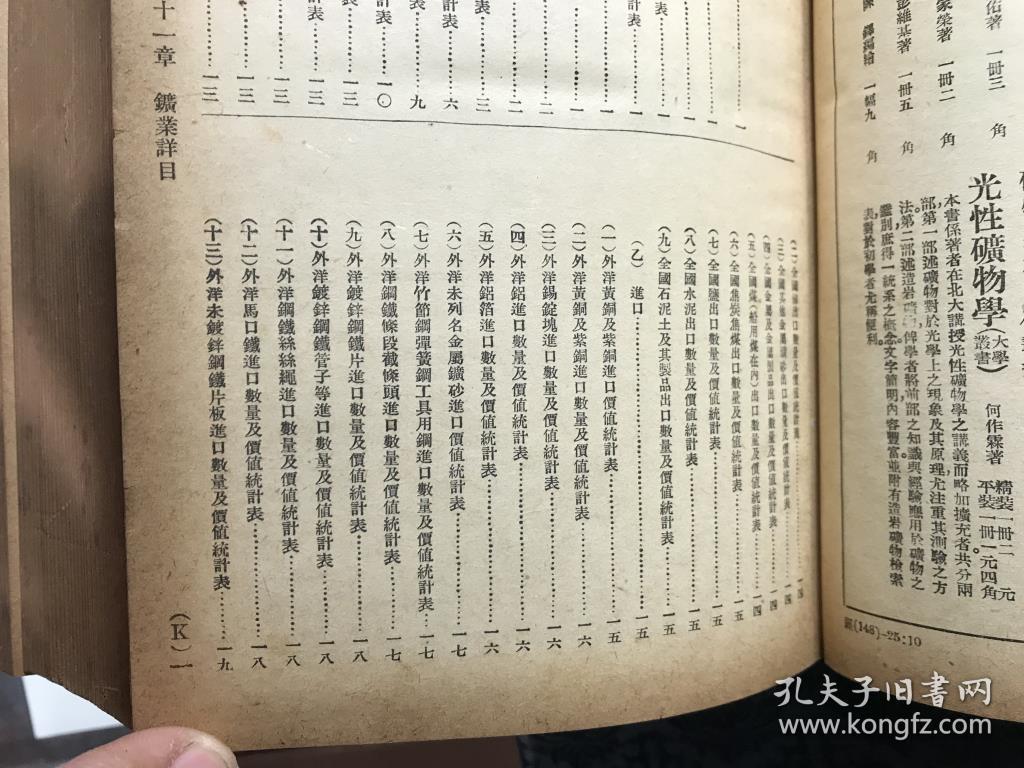 佑著 一冊三 角
家榮著 一冊二 角
彭維基著 一冊五 角
一幅九 角
光性礦物學(大學叢書) 何作霖著 精裝一冊二元 平裝一冊一元四角
本書係著者在北大講授光性礦物學之講義而略加擴充者共分兩
部,第一部述礦物對於光學上之現象及其原理尤注重其測驗之方
法。第二部述造岩礦物,俾學者將前部之知識與經驗應用於礦物之
鑑別庶得一統系之概念文字簡明內容豐富並附有造岩礦物檢索
表,對於初學者尤稱便利。
(148)—25:10
計表……一三
計表……一三
計表……一〇
計表……九
計表……六
十一章 鑛業詳目
出口數量及價值統計表……一四
出口數量及價值統計表……一四
(四)全國金屬及金屬製品出口數量及價值統計表……一四
(五)全國煤(船用煤在內)出口數量及價值統計表……一四
(六)全國焦炭焦煤出口數量及價值統計表……一五
(七)全國鹽出口數量及價值統計表……一五
(八)全國水泥出口數量及價值統計表……一五
(九)全國石泥土及其製品出口數量及價值統計表……一五
(乙)進口……一五
(一)外洋黃銅及紫銅進口數量及價值統計表……一五
(二)外洋黃銅及紫銅進口數量及價值統計表……一六
(三)外洋錫錠塊進口數量及價值統計表……一六
(四)外洋鋁進口數量及價值統計表……一六
(五)外洋鋁箔進口數量及價值統計表……一六
(六)外洋未列名金屬鑛砂進口價值統計表……一七
(七)外洋竹節鋼彈簧鋼工具用鋼進口數量及價值統計表……一七
(八)外洋鋼鐵條段截條頭進口數量及價值統計表……一七
(九)外洋鍍鋅鋼鐵片進口數量及價值統計表……一八
(十)外洋鍍鋅鋼鐵管子等進口數量及價值統計表……一八
(十一)外洋鋼鐵絲絲繩進口數量及價值統計表……一八
(十二)外洋馬口鐵進口數量及價值統計表……一八
(十三)外洋未鍍鋅鋼鐵片板進口數量及價值統計表……一九
(K)一
孔夫子旧书网
www.kongfz.com